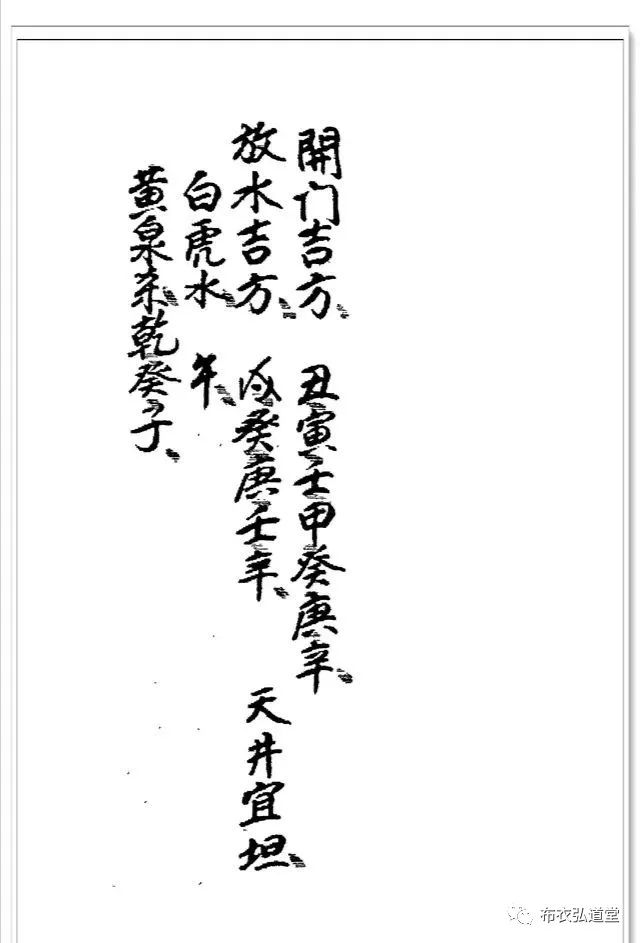 開门吉方 丑寅壬甲癸庚辛
放水吉方 癸庚壬辛 天井宜坦
白虎水 午
黄泉杀乾癸子
布衣弘道堂